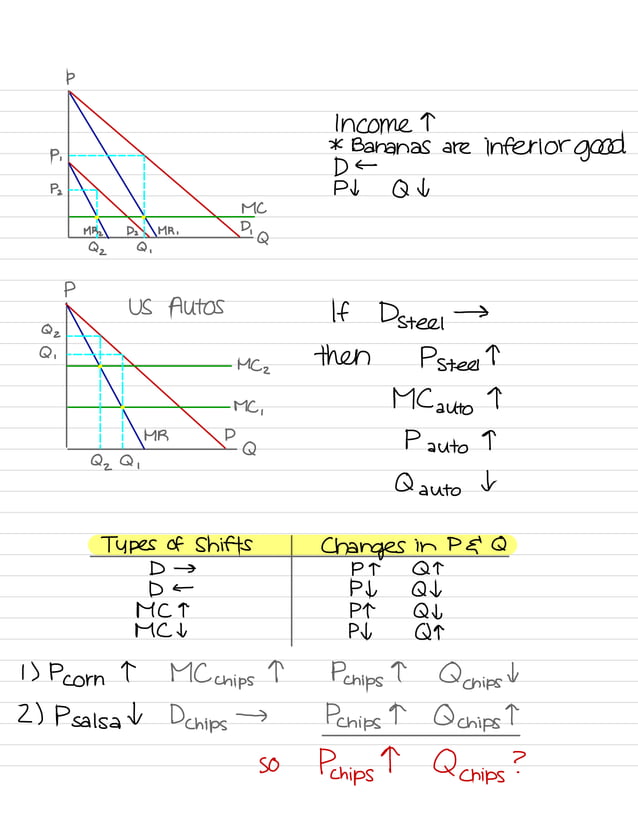 P
P₁
P₂
MC
D₁
Q
MR₂
D₂
MR₁
Q₂
Q₁
Income ↑
* Bananas are inferior good
D ←
P↓ Q↓
P
US Autos
Q₂
Q₁
MC₂
MC₁
MR
D
Q
Q₂ Q₁
If D steel →
then P steel ↑
MC auto ↑
P auto ↑
Q auto ↓
Types of Shifts Changes in P & Q
D → P↑ Q↑
D ← P↓ Q↓
MC↑ P↑ Q↓
MC↓ P↓ Q↑
1) P corn ↑ MC chips ↑ P chips ↑ Q chips ↓
2) P salsa ↓ D chips → P chips ↑ Q chips ↑
so P chips ↑ Q chips ?